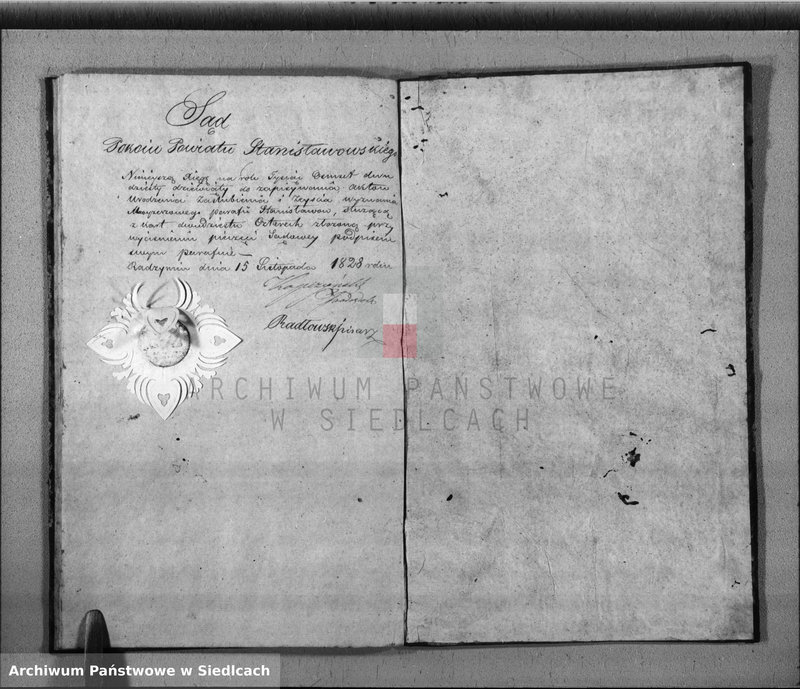 Sąd
Pokoiu Powiatu Stanisławowskiego
Ninieyszą Xięgę na rok Tysiąc Osmset dwu
dziesty dziewiąty do zapisywania aktów
Urodzenia Zaślubienia i Zeyścia wyznania
Moyżeszowego parafii Stanisławów, służącą
z kart dwudziestu Czterech złożoną przy
wyciśnieniu pieczęci Sądowey podpisem
swym parafuie —
Radzymin dnia 15 Listopada 1828 roku
Radłowski pisarz
ARCHIWUM PAŃSTWOWE
W SIEDLCACH
Archiwum Państwowe w Siedlcach